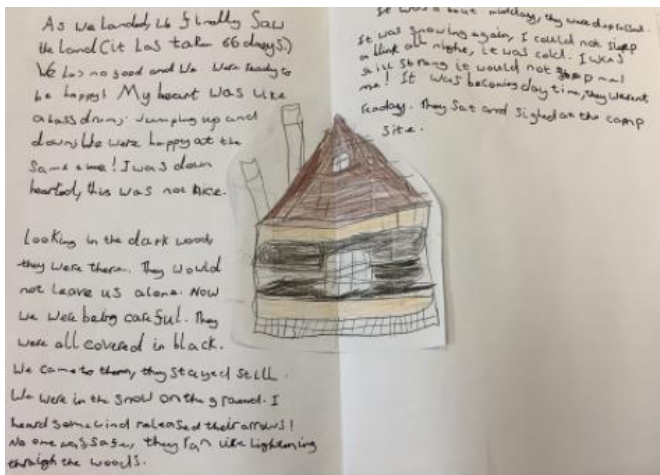 As we landed, we finally saw
the land (it has taken 66 days.)
We has no good and we were ready to
be happy! My heart was like
a bass drum; Jumping up and
down; We were happy at the
same time! I was down
hearted, this was not nice.
Looking in the dark woods
they were there. They would
not leave us alone. Now
we were being careful. They
were all covered in black.
We came to them, they stayed still.
We were in the snow on the ground. I
heard some wind released their arrows!
No one was safe, they ran like lightening
through the woods.
It was about midday, they were
It was snowing again, I could not sleep
a blink all nighe, it was cold. I was
still strong it would not stop me!
me! It was becoming day time, they
They sat and sighed at the camp
site.